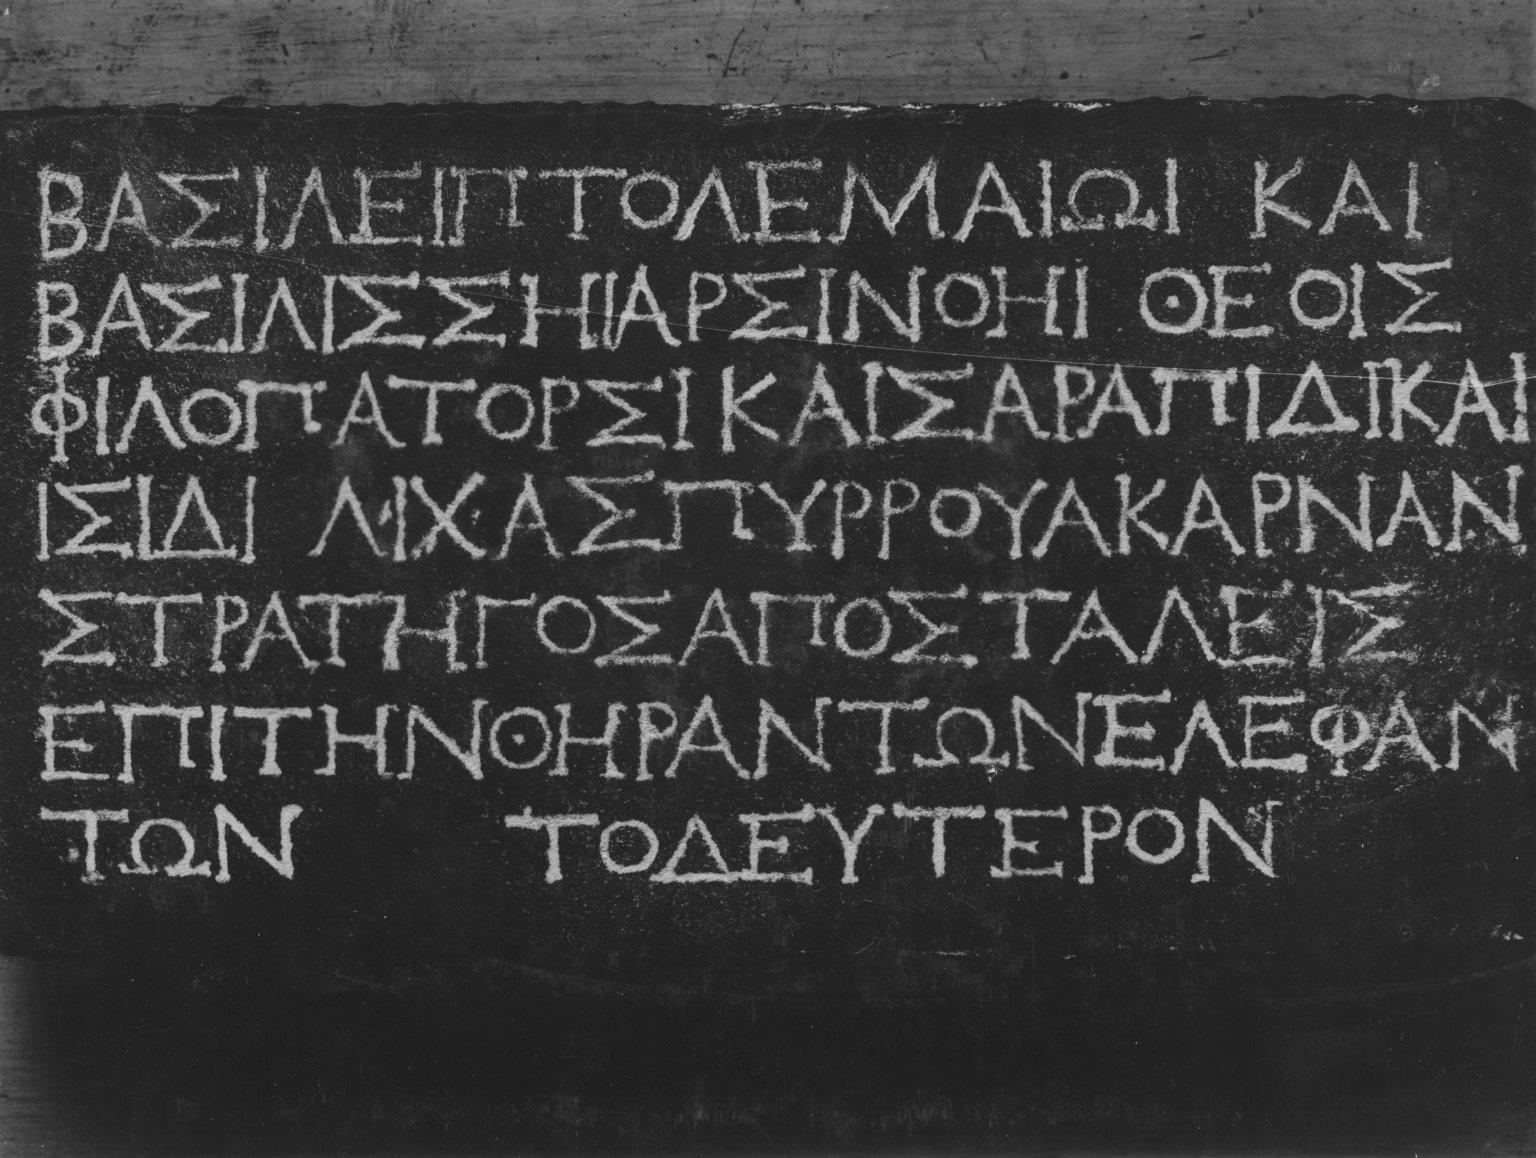 ΒΑΣΙΛΕΙΠΤΟΛΕΜΑΙΩΙ ΚΑΙ
ΒΑΣΙΛΙΣΣΗΙΑΡΣΙΝΟΗΙ ΘΕΟΙΣ
ΦΙΛΟΠΑΤΟΡΣΙ ΚΑΙΣΑΡΑΠΙΔΙΚΑΙ
ΙΣΙΔΙ ΛΙΧΑΣΠΥΡΡΟΥΑΚΑΡΝΑΝ
ΣΤΡΑΤΗΓΟΣΑΠΟΣΤΑΛΕΙΣ
ΕΠΙΤΗΝΘΗΡΑΝΤΩΝΕΛΕΦΑΝ
ΤΩΝ ΤΟΔΕΥΤΕΡΟΝ